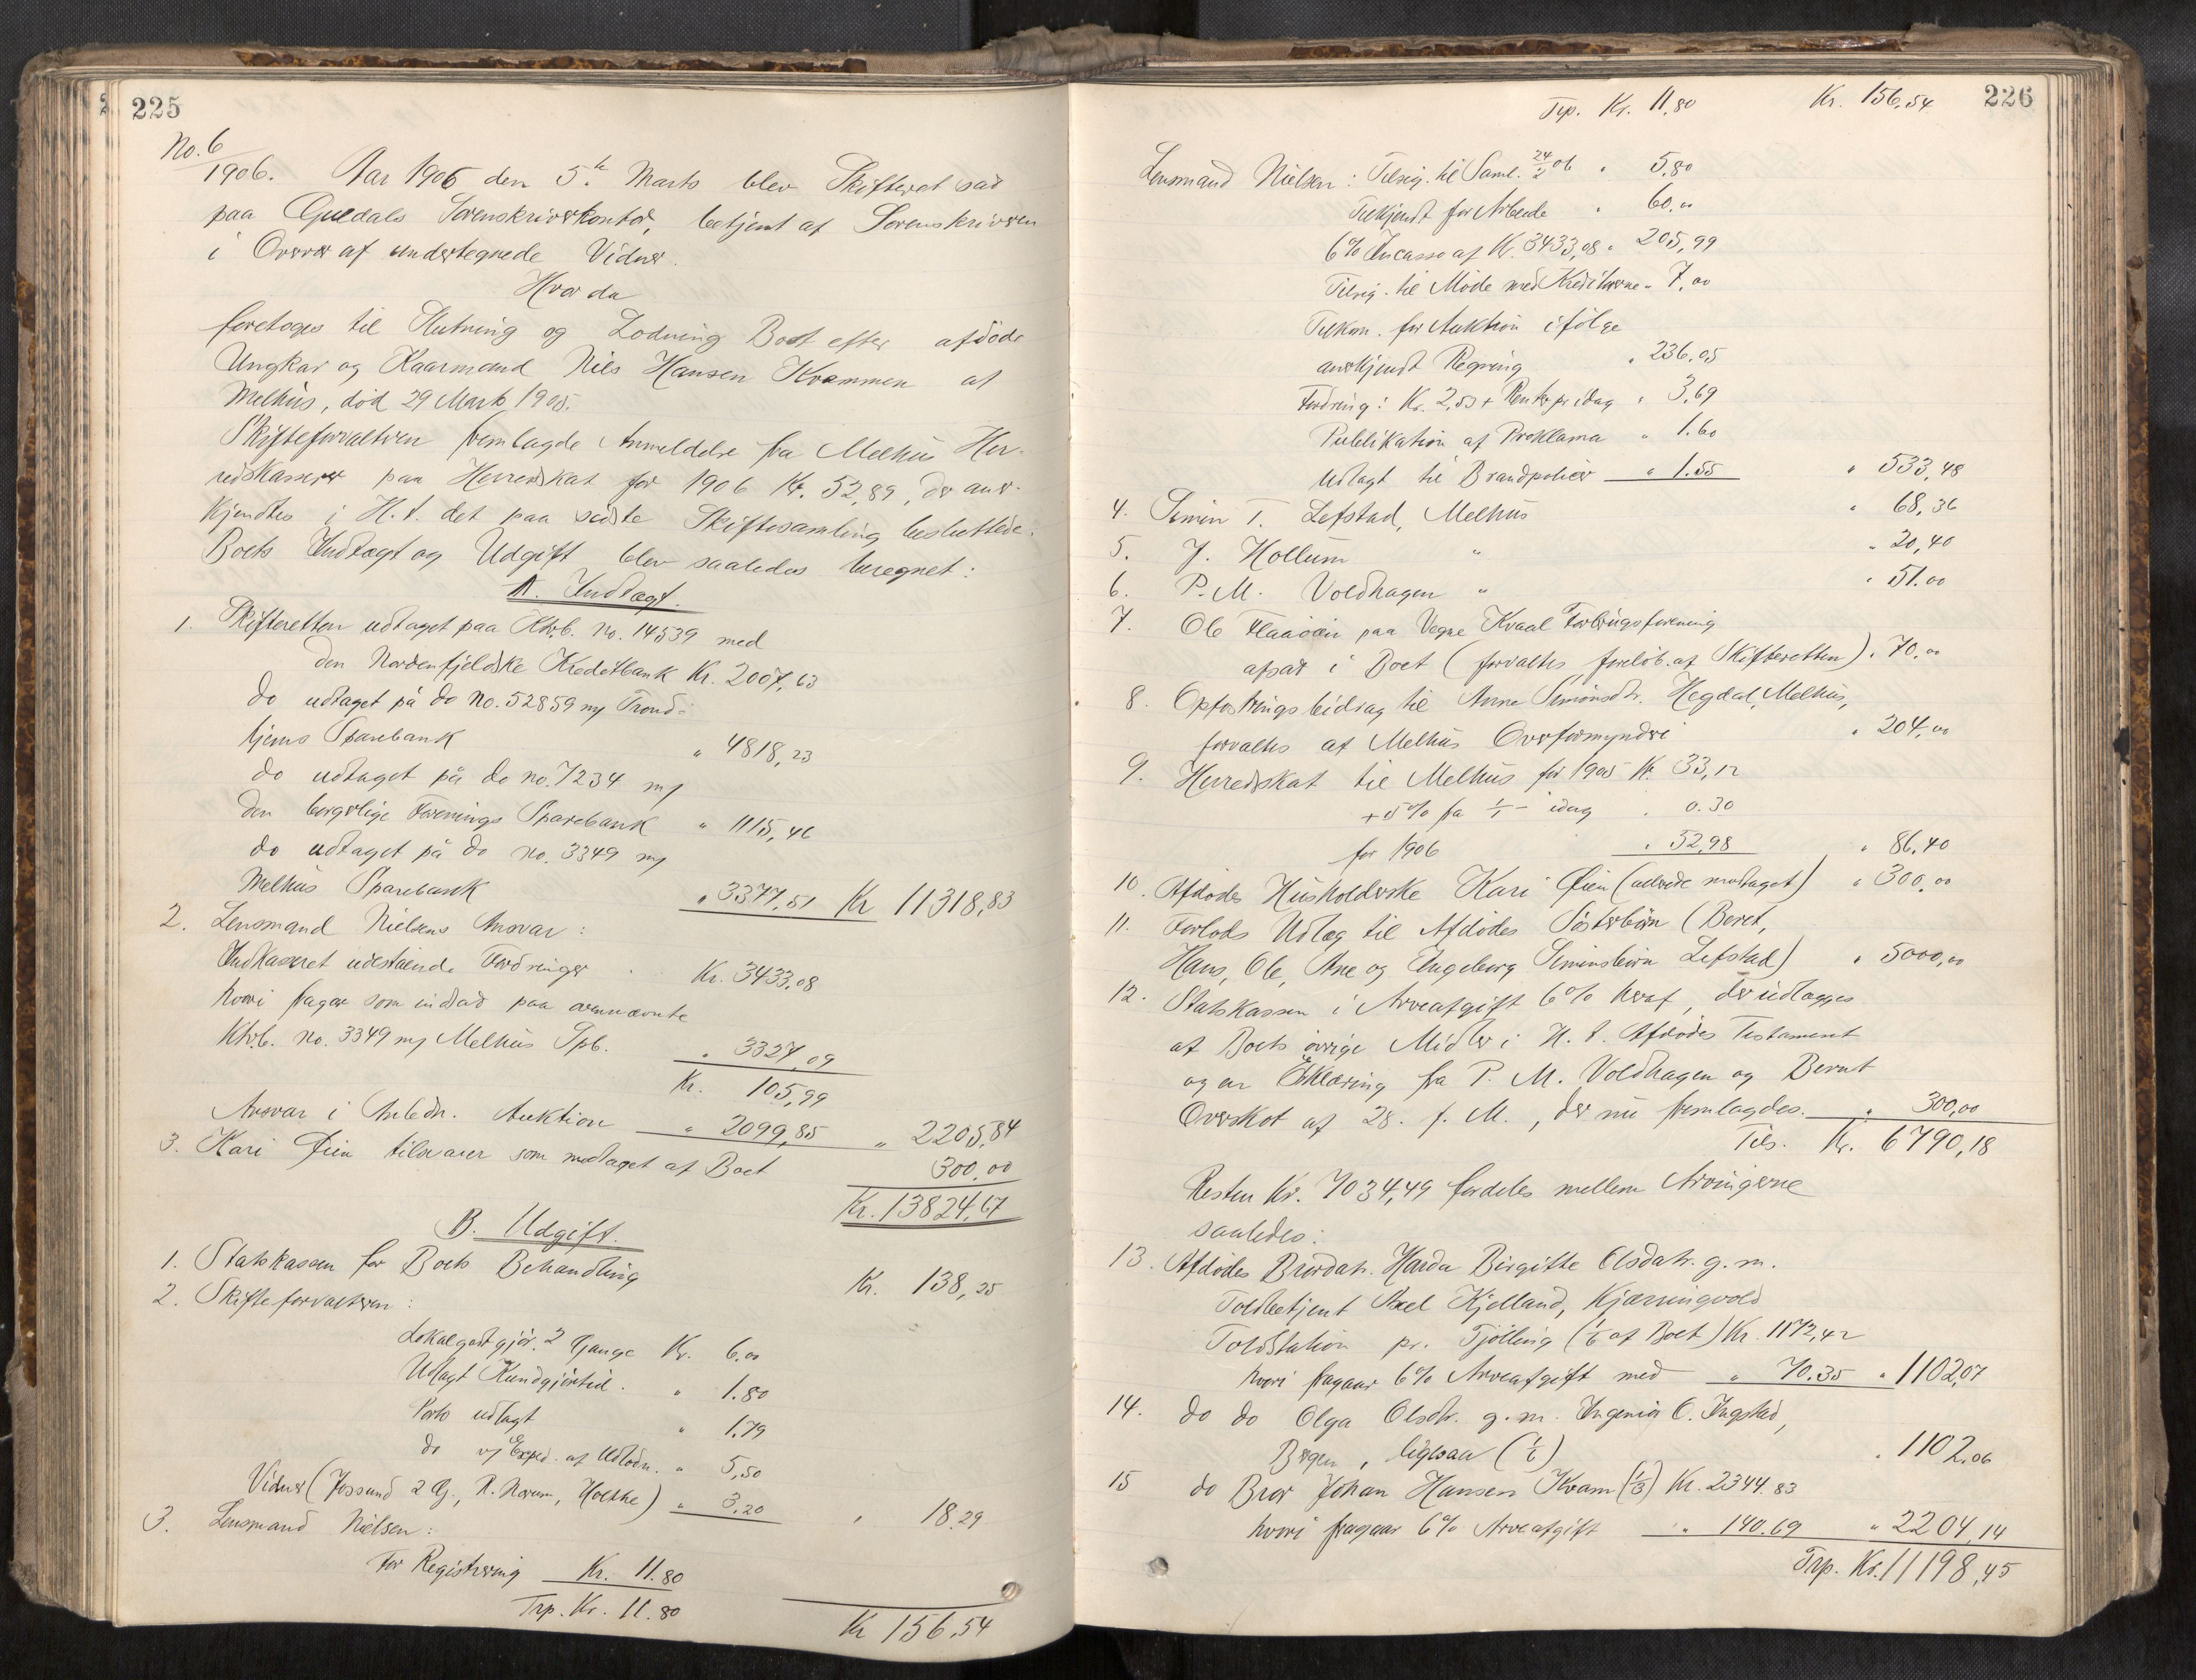 225
No. 6
1906. Aar 1906 den 5te Marts blev Skifteret sad
paa Guldals Sorenskriverkontor, betjent af Sorenskriveren
i Overvær af undertegnede Vidner.
Hvor da
foretoges til Slutning og Lodning Boet efter afdøde
Ungkar og Kaarmand Nils Hansen Kvammen af
Melhus, död 29 Marts 1905.
Skifteforvalteren fremlagde Anmeldelse fra Melhus Her-
redskasserer paa Herredskat for 1906 Kr. 52,89, der aner-
kjendtes i H.t. det paa sidste Skiftesamling besluttede.
Boets Indtægt og Udgift blev saaledes beregnet:
A. Indtægt.
1. Skifteretten udtaget paa Ktrb. No. 14539 med
den Nordenfjeldske Kreditbank Kr. 2007,63
do udtaget på do No. 52859 m/ Trond-
hjems Sparebank " 4818,23
do udtaget på do no. 7234 m/
den borgerlige Forenings Sparebank " 1115,46
do udtaget på do no. 3349 m/
Melhus Sparebank " 3377,51 Kr 11318,83
2. Lensmand Nielsens Ansvar:
Indkasseret udestående Fordringer Kr. 3433,08
hvori fragaar som indsat paa ovennævnte
Ktrb. No. 3349 m/ Melhus Spb. " 3327,09
Kr. 105,99
Ansvar i Anledn. Auktion " 2099,85 " 2205,84
3. Kari Øien tilsvarer som modtaget af Boet 300,00
Kr. 13824,67
B. Udgift.
1. Statskassen for Boets Behandling Kr. 138,25
2. Skifteforvalteren:
Lokalgodtgjör. 2 Gange Kr. 6,00
Udlagt Kundgjörtid. " 1.80
Porto udlagt " 1.79
do v/ Exped. af Udlodn. " 5,50
Vidner (Jossund 2 G., R. Norum, Holthe) " 3.20 " 18.29
3. Lensmand Nielsen:
For Registrering Kr. 11.80
Trp. Kr. 11.80 Kr 156.54
226
Trp. Kr. 11.80 Kr. 156,54
Lensmand Nielsen: Tilsig. til Saml. 24/2 06 " 5,80
Tilkjendt for Arbeide " 60,00
6% Incasso af Kr. 3433,08 " 205,99
Tilsig. til Møde med Kreditorerne " 7,00
Tilkom. for Auktion ifölge
anerkjendt Regning " 236.05
Fordring: Kr. 2,53 + Renter pr idag " 3,69
Publikation af Proklama " 1.60
Udlagt til Brandpolicer " 1.55 " 533,48
4. Simen T. Lefstad, Melhus " 68,36
5. J. Hollum " " 20,40
6. P. M. Voldhagen " " 51.00
7. Ole Flaaöien paa Vegne Kvaal Forbrugsforening
afsat i Boet (forvaltes foreløb. af Skifteretten) " 70,00
8. Opfostringsbidrag til Anne Simonsdtr. Hegdal, Melhus,
forvaltes af Melhus Overformynderi " 204,00
9. Herredskat til Melhus for 1905 Kr. 33,12
+ 5% fra 1/1 – idag " 0.30
for 1906 " 52,98 " 86,40
10. Afdødes Husholderske Kari Øien (allerede modtaget) " 300,00
11. Forlods Udlæg til Afdödes Søsterbörn (Beret,
Hans, Ole, Ane og Ingeborg Simensbörn Lefstad) " 5000,00
12. Statskassen i Arveafgift 6% heraf, der udlægges
af Boets øvrige Midler i H. t. Afdødes Testament
og en Erklæring fra P. M. Voldhagen og Bernt
Overskot af 28. f. M., der nu fremlagdes. " 300,00
Tils. Kr. 6790,18
Resten Kr. 7034,49 fordeles mellem Arvingerne
saaledes:
13. Afdödes Brordatr. Harda Birgitte Olsdatr. g. m.
Toldbetjent Axel Kjelland, Kjærringvold
Toldstation pr. Tjölling (1/6 af Boet) Kr. 1172,42
hvori fragaar 6% Arveafgift med " 70.35 " 1102,07
14. do do Olga Olsdtr. g. m. Ingeniør O. Ingstad,
Bergen, ligesaa (1/6) " 1102,06
15 do Bror Johan Hansen Kvam (1/3) Kr. 2344.83
hvori fragaar 6% Arveafgift " 140.69 " 2204,14
Trp. Kr. 11198,45